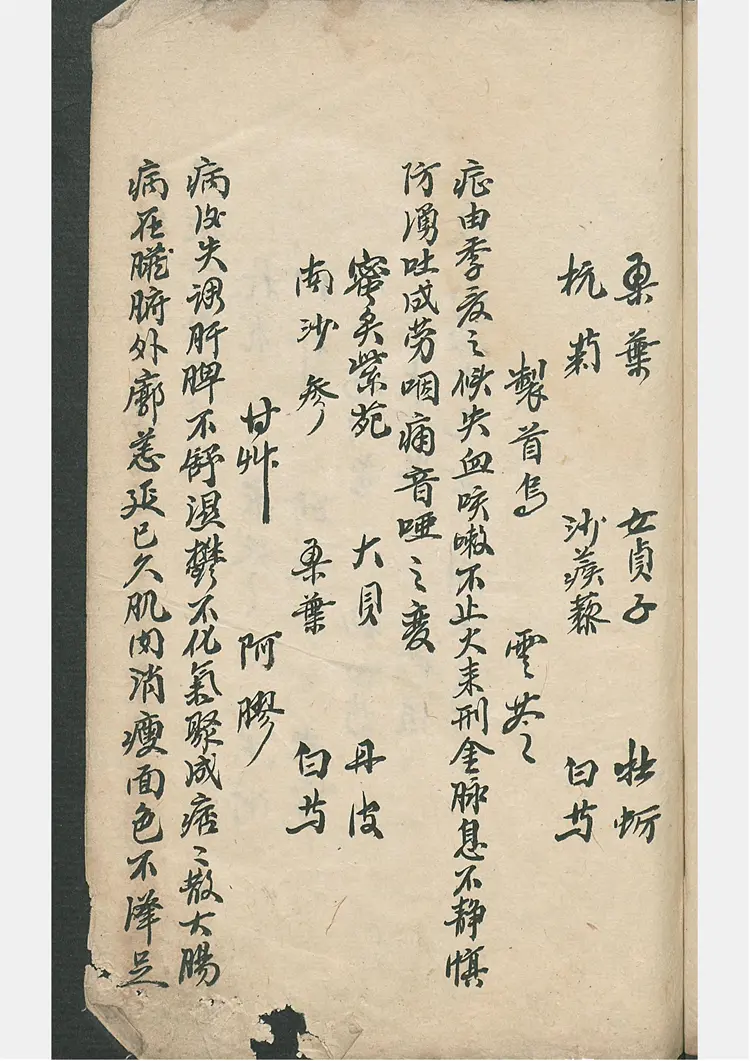 桑葉 女貞子 牡蛎
杭菊 沙蒺藜 白芍
製首烏 雲苓
症由季夏之候失血咳嗽不止火来刑金脉息不静慎
防湧吐成劳咽痛音啞之变
蜜炙紫苑 大貝 丹皮
南沙參 桑葉 白芍
甘艸 阿膠
病後失调肝脾不舒濕鬱不化氣聚成痞〻散大腸
病在臟腑外廓蔓延已久肌肉消瘦面色不澤足